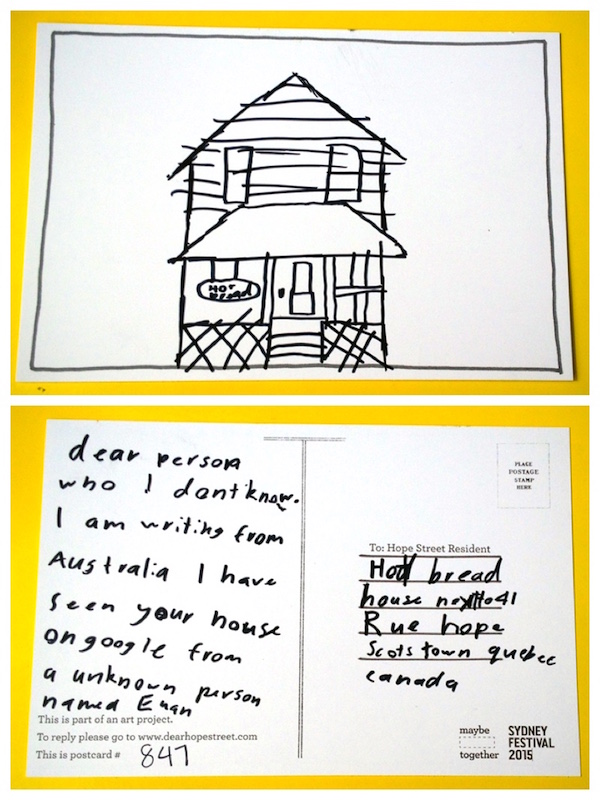 HOT
BREAD
dear person
who I dont know.
I am writing from
Australia I have
seen your house
on google from
a unknown person
named Euan
This is part of an art project.
To reply please go to www.dearhopestreet.com
This is postcard # 847
PLACE
POSTAGE
STAMP
HERE
To: Hope Street Resident
Hot bread
house next to 41
Rue hope
Scotstown quebec
canada
maybe
together
SYDNEY
FESTIVAL
2015